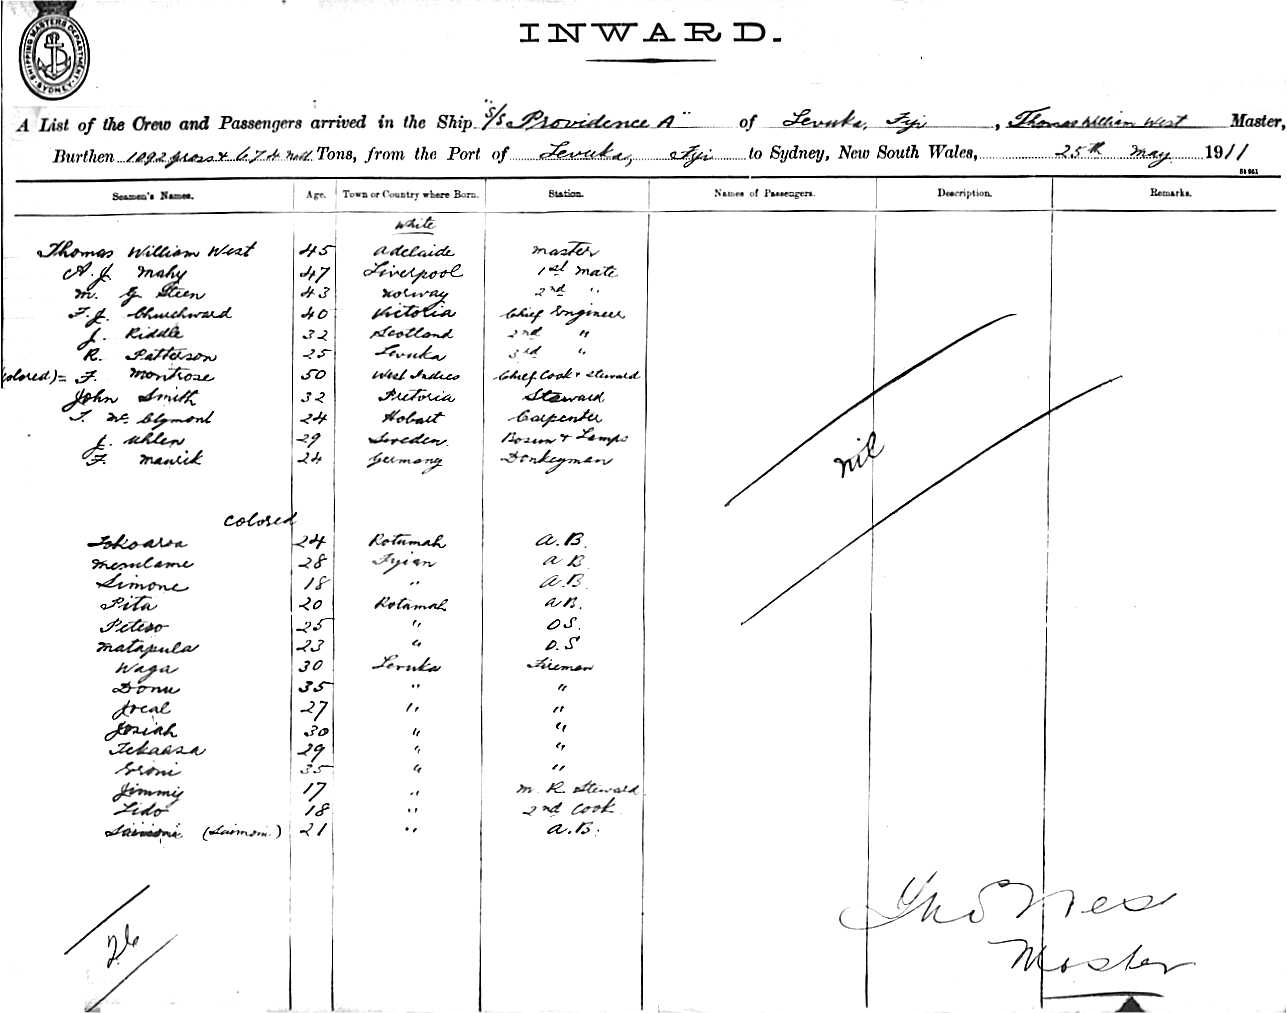 SHIPPING MASTERS DEPARTMENT SYDNEY
INWARD.
A List of the Crew and Passengers arrived in the Ship "S/S Providence A" of Levuka, Fiji, Thomas William West Master,
Burthen 1092 gross & 674 nett Tons, from the Port of Levuka, Fiji to Sydney, New South Wales, 25th May 1911
Seamen's Names. Age. Town or Country where Born. Station. Names of Passengers. Description. Remarks.
White
Thomas William West 45 Adelaide Master
A. J. Mahy 47 Liverpool 1st Mate
M. G. Steen 43 Norway 2nd "
F. J. Churchward 40 Victoria Chief Engineer
J. Riddle 32 Scotland 2nd "
R. Patterson 25 Levuka 3rd "
(colored) = F. Montrose 50 West Indies Chief Cook & Steward
John Smith 32 Pretoria Steward
T. McClymont 24 Hobart Carpenter
J. Uhlen 29 Sweden. Bosun & Lamps
F. 24 Germany Donkeyman
nil
Colored
24 Rotumah A.B.
28 Fijian A B
Simone 18 " A.B.
Pita 20 Rotumah A B.
Peteso 25 " O S.
Matapula 23 " O. S
Waga 30 Levuka Fireman
Donu 35 " "
Jocal 27 " "
Josiah 30 " "
Tekaasa 29 " "
Eroni 35 " "
Jimmy 17 " M. R. Steward
Lido 18 " 2nd Cook
Saimoni (Saimoni) 21 " A.B.
26
Thos W West
Master